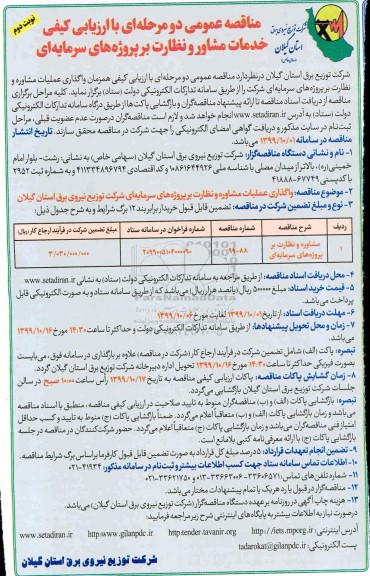 نوبت دوم
شرکت توزیع نیروی برق
استان گیلان
(سهامی خاص)
مناقصه عمومی دو مرحله‌ای با ارزیابی کیفی
خدمات مشاور و نظارت بر پروژه‌های سرمایه‌ای
شرکت توزیع برق استان گیلان در نظر دارد مناقصه عمومی دو مرحله‌ای با ارزیابی کیفی همزمان واگذاری عملیات مشاوره و
نظارت بر پروژه‌های سرمایه‌ای شرکت را از طریق سامانه تدارکات الکترونیکی دولت (ستاد) برگزار نماید. کلیه مراحل برگزاری
مناقصه از دریافت اسناد مناقصه تا ارائه پیشنهاد مناقصه‌گران و بازگشایی پاکت‌ها از طریق درگاه سامانه تدارکات الکترونیکی
دولت (ستاد) به آدرس www.setadiran.ir انجام خواهد شد و لازم است مناقصه‌گران درصورت عدم عضویت قبلی، مراحل
ثبت‌نام در سایت مذکور و دریافت گواهی امضای الکترونیکی را جهت شرکت در مناقصه محقق سازند. تاریخ انتشار
مناقصه در سامانه ۱۳۹۹/۱۰/۰۱ می‌باشد.
۱- نام و نشانی دستگاه مناقصه‌گزار: شرکت توزیع نیروی برق استان گیلان (سهامی خاص) به نشانی: رشت- بلوار امام
خمینی(ره)، بالاتر از میدان مصلی با شناسه ملی ۱۰۸۶۱۶۴۴۹۲۶ و کد اقتصادی ۴۱۱۳۳۴۸۹۶۷۹۴ و به شماره ثبت ۲۹۵۲
با کدپستی ۶۷۷۴۹-۴۱۸۸۸
۲- موضوع مناقصه: واگذاری عملیات مشاوره و نظارت بر پروژه‌های سرمایه‌ای شرکت توزیع نیروی برق استان گیلان
۳- نوع و مبلغ تضمین شرکت در مناقصه: تضمین قابل قبول خریدار برابر بند ۱۲ برگ شرایط و به شرح جدول ذیل:
ردیف شرح مناقصه شماره مناقصه شماره فراخوان در سامانه ستاد مبلغ تضمین شرکت در فرآیند ارجاع کار (ریال)
۱ مشاوره و نظارت بر پروژه‌های سرمایه‌ای ۹۹-۸۸ ۲۰۹۹۰۰۵۱۰۲۰۰۰۰۹۰ ۳/۰۳۰/۰۰۰/۰۰۰
۴- محل دریافت اسناد مناقصه: از طریق مراجعه به سامانه تدارکات الکترونیکی دولت (ستاد) به نشانی www.setadiran.ir
۵- قیمت خرید اسناد: مبلغ ۵۰۰۰۰۰ ریال (پانصد هزار ریال) می‌باشد که از طریق سامانه ستاد و به صورت الکترونیکی قابل
پرداخت می‌باشد.
۶- مهلت دریافت اسناد: از تاریخ ۱۳۹۹/۱۰/۰۱ لغایت مورخ ۱۳۹۹/۱۰/۰۶
۷- زمان و محل تحویل پیشنهادها: از طریق سامانه تدارکات الکترونیکی دولت و حداکثر تا ساعت ۱۴:۳۰ مورخ ۱۳۹۹/۱۰/۱۶
تبصره: پاکت (الف) شامل تضمین شرکت در فرآیند ارجاع کار (شرکت در مناقصه) علاوه بر بارگذاری در سامانه فوق، می‌بایست
بصورت فیزیکی حداکثر تا ساعت ۱۴:۳۰ مورخ ۱۳۹۹/۱۰/۱۶ تحویل اداره دبیرخانه شرکت توزیع برق استان گیلان گردد.
۸- زمان گشایش پاکات مناقصه: پاکات ارزیابی کیفی مناقصه به تاریخ ۱۳۹۹/۱۰/۱۷ رأس ساعت ۱۰:۰۰ صبح در سالن
جلسات شرکت توزیع برق استان گیلان بازگشایی می‌گردد.
تبصره: بازگشایی پاکات (الف) و (ب) مناقصه‌گران منوط به تایید صلاحیت در ارزیابی کیفی مناقصه، منطبق با اسناد مناقصه
می‌باشد و زمان بازگشایی پاکات (الف) و (ب) متعاقباً اعلام می‌گردد. ضمناً بازگشایی پاکات (ج) منوط به تایید و کسب حداقل
امتیاز فنی مناقصه‌گران می‌باشد و زمان بازگشایی پاکات (ج) متعاقباً اعلام می‌گردد. حضور شرکت‌کنندگان در مناقصه در جلسه
بازگشایی پاکات (ج) با ارائه معرفی‌نامه کتبی بلامانع است.
۹- تضمین انجام تعهدات قرارداد: ۵ درصد مبلغ کل قرارداد به صورت تضمین قابل قبول کارفرما براساس برگ شرایط مناقصه.
۱۰- اطلاعات تماس سامانه ستاد جهت کسب اطلاعات بیشتر و ثبت‌نام در سامانه مذکور: ۴۱۹۳۴-۰۲۱
۱۱- شماره تلفن‌های تماس: ۳۳۶۰۶۵۷۱-۳۳۶۶۳۰۰۶-۰۱۳ و ۳۳۶۲۱۷۵۰-۰۱۳
۱۲- مناقصه‌گزار در قبول یا رد هر یک یا تمام پیشنهادات مختار می‌باشد.
۱۳- هزینه چاپ آگهی در روزنامه برعهده دستگاه مناقصه‌گزار (شرکت توزیع نیروی برق استان گیلان) می‌باشد.
درصورت نیاز به اطلاعات بیشتر به پایگاه‌های اینترنتی شرح زیر مراجعه فرمایید:
آدرس اینترنتی: http://iets.mporg.ir http:tender.tavanir.org http:www.gilanpdc.ir www.setadiran.ir
پست الکترونیکی: tadarokat@gilanpdc.ir
شرکت توزیع نیروی برق استان گیلان